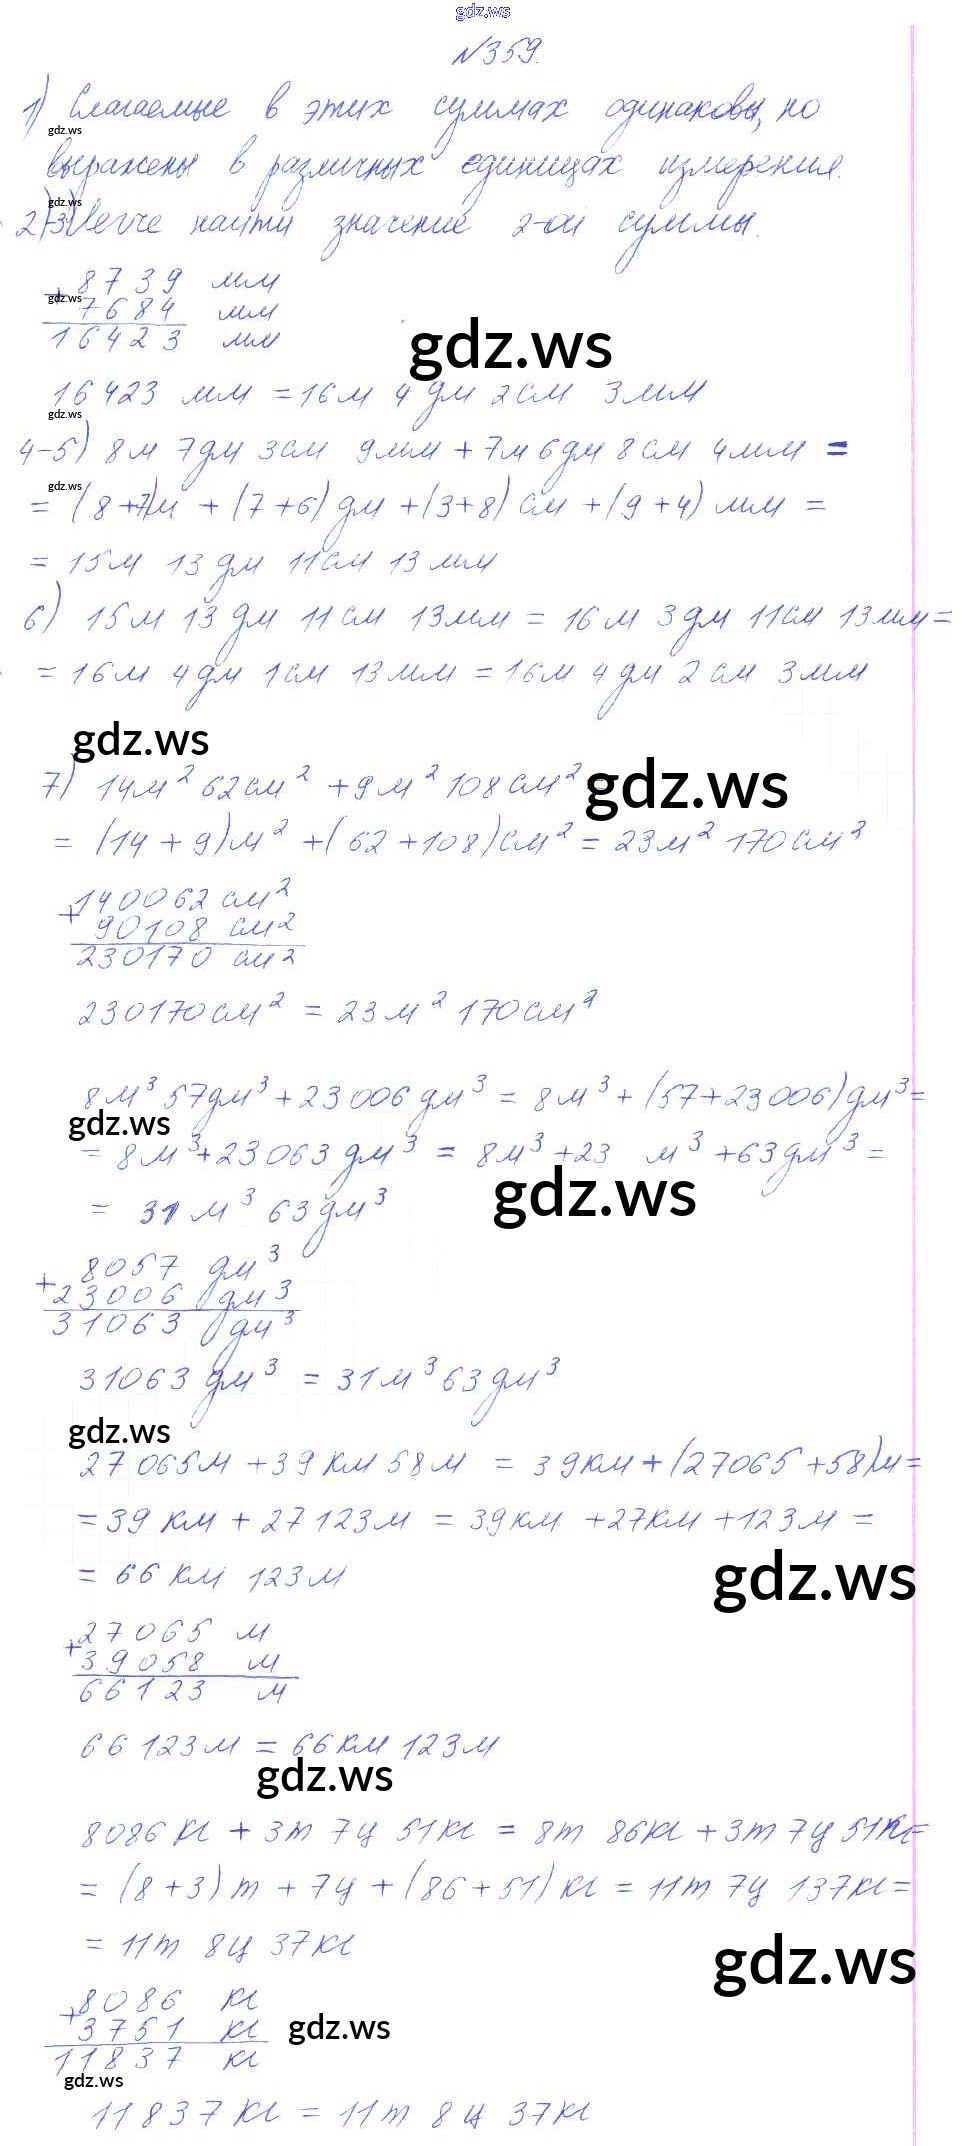 gdz.ws
№359.
1) Слагаемые в этих суммах одинаковы, но
gdz.ws
выражены в различных единицах измерения.
gdz.ws
2)-3) Легче найти значение 2-ой суммы.
+ 8739 мм
gdz.ws
7684 мм
16423 мм
gdz.ws
16423 мм = 16м 4дм 2см 3мм
gdz.ws
4-5) 8м 7дм 3см 9мм + 7м 6дм 8см 4мм =
gdz.ws
= (8+7)м + (7+6)дм + (3+8)см + (9+4)мм =
= 15м 13дм 11см 13мм
6) 15м 13дм 11см 13мм = 16м 3дм 11см 13мм =
= 16м 4дм 1см 13мм = 16м 4дм 2см 3мм
gdz.ws
7) 14м² 62см² + 9м² 108см²
gdz.ws
= (14+9)м² + (62+108)см² = 23м² 170см²
+ 140062 см²
90108 см²
230170 см²
230170см² = 23м² 170см²
8м³ 57дм³ + 23006дм³ = 8м³ + (57+23006)дм³ =
gdz.ws
= 8м³ + 23063дм³ = 8м³ + 23 м³ + 63дм³ =
gdz.ws
= 31м³ 63дм³
+ 8057 дм³
23006 дм³
31063 дм³
31063 дм³ = 31м³ 63дм³
gdz.ws
27065м + 39км 58м = 39км + (27065+58)м =
= 39км + 27123м = 39км + 27км + 123м =
gdz.ws
= 66км 123м
+ 27065 м
39058 м
66123 м
66123м = 66км 123м
gdz.ws
8086кг + 3т 7ц 51кг = 8т 86кг + 3т 7ц 51кг =
= (8+3)т + 7ц + (86+51)кг = 11т 7ц 137кг =
= 11т 8ц 37кг
gdz.ws
+ 8086 кг
3751 кг
gdz.ws
11837 кг
gdz.ws
11837кг = 11т 8ц 37кг